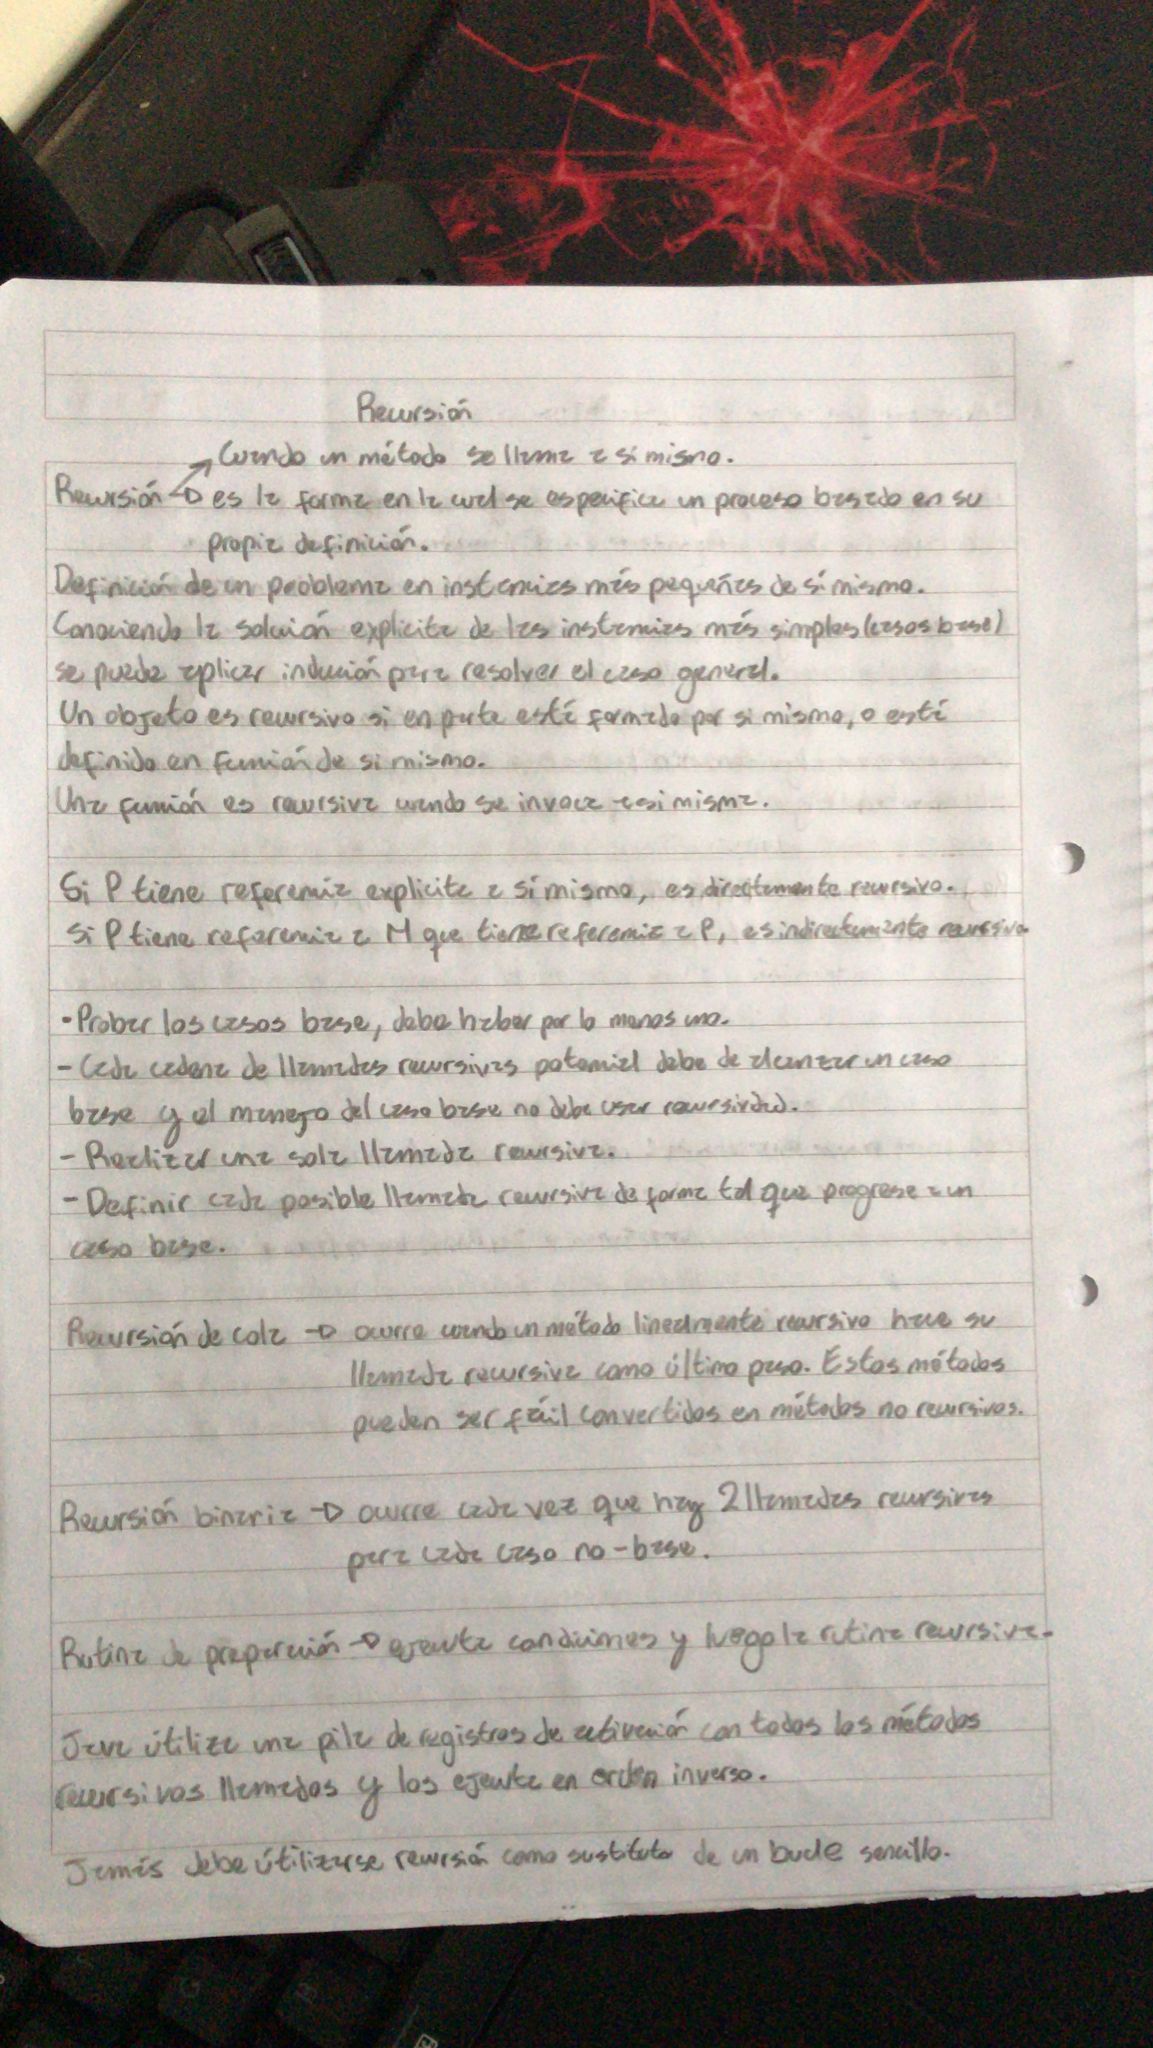 Recursión
Cuando un método se llama a si mismo.
Recursión → es la forma en la cual se especifica un proceso basado en su
propia definición.
Definición de un problema en instancias más pequeñas de sí mismo.
Conociendo la solución explicita de las instancias más simples (casos base)
se puede aplicar inducción para resolver el caso general.
Un objeto es recursivo si en parte está formado por si mismo, o está
definido en función de si mismo.
Una función es recursiva cuando se invoca a si misma.
Si P tiene referencia explicita a sí mismo, es directamente recursivo.
Si P tiene referencia a M que tiene referencia a P, es indirectamente recursivo
- Probar los casos base, debe haber por lo menos uno.
- Cada cadena de llamadas recursivas potencial debe de alcanzar un caso
base y el manejo del caso base no debe usar recursividad.
- Realizar una sola llamada recursiva.
- Definir cada posible llamada recursiva de forma tal que progrese a un
caso base.
Recursión de cola → ocurre cuando un método linealmente recursivo hace su
llamada recursiva como último paso. Estos métodos
pueden ser fácil convertidos en métodos no recursivos.
Recursión binaria → ocurre cada vez que hay 2 llamadas recursivas
para cada caso no-base.
Rutina de preparación → ejecuta condiciones y luego la rutina recursiva.
Java útiliza una pila de registros de activación con todos los métodos
recursivos llamados y los ejecuta en orden inverso.
Jamás debe útilizarse recursión como sustituto de un bucle sencillo.